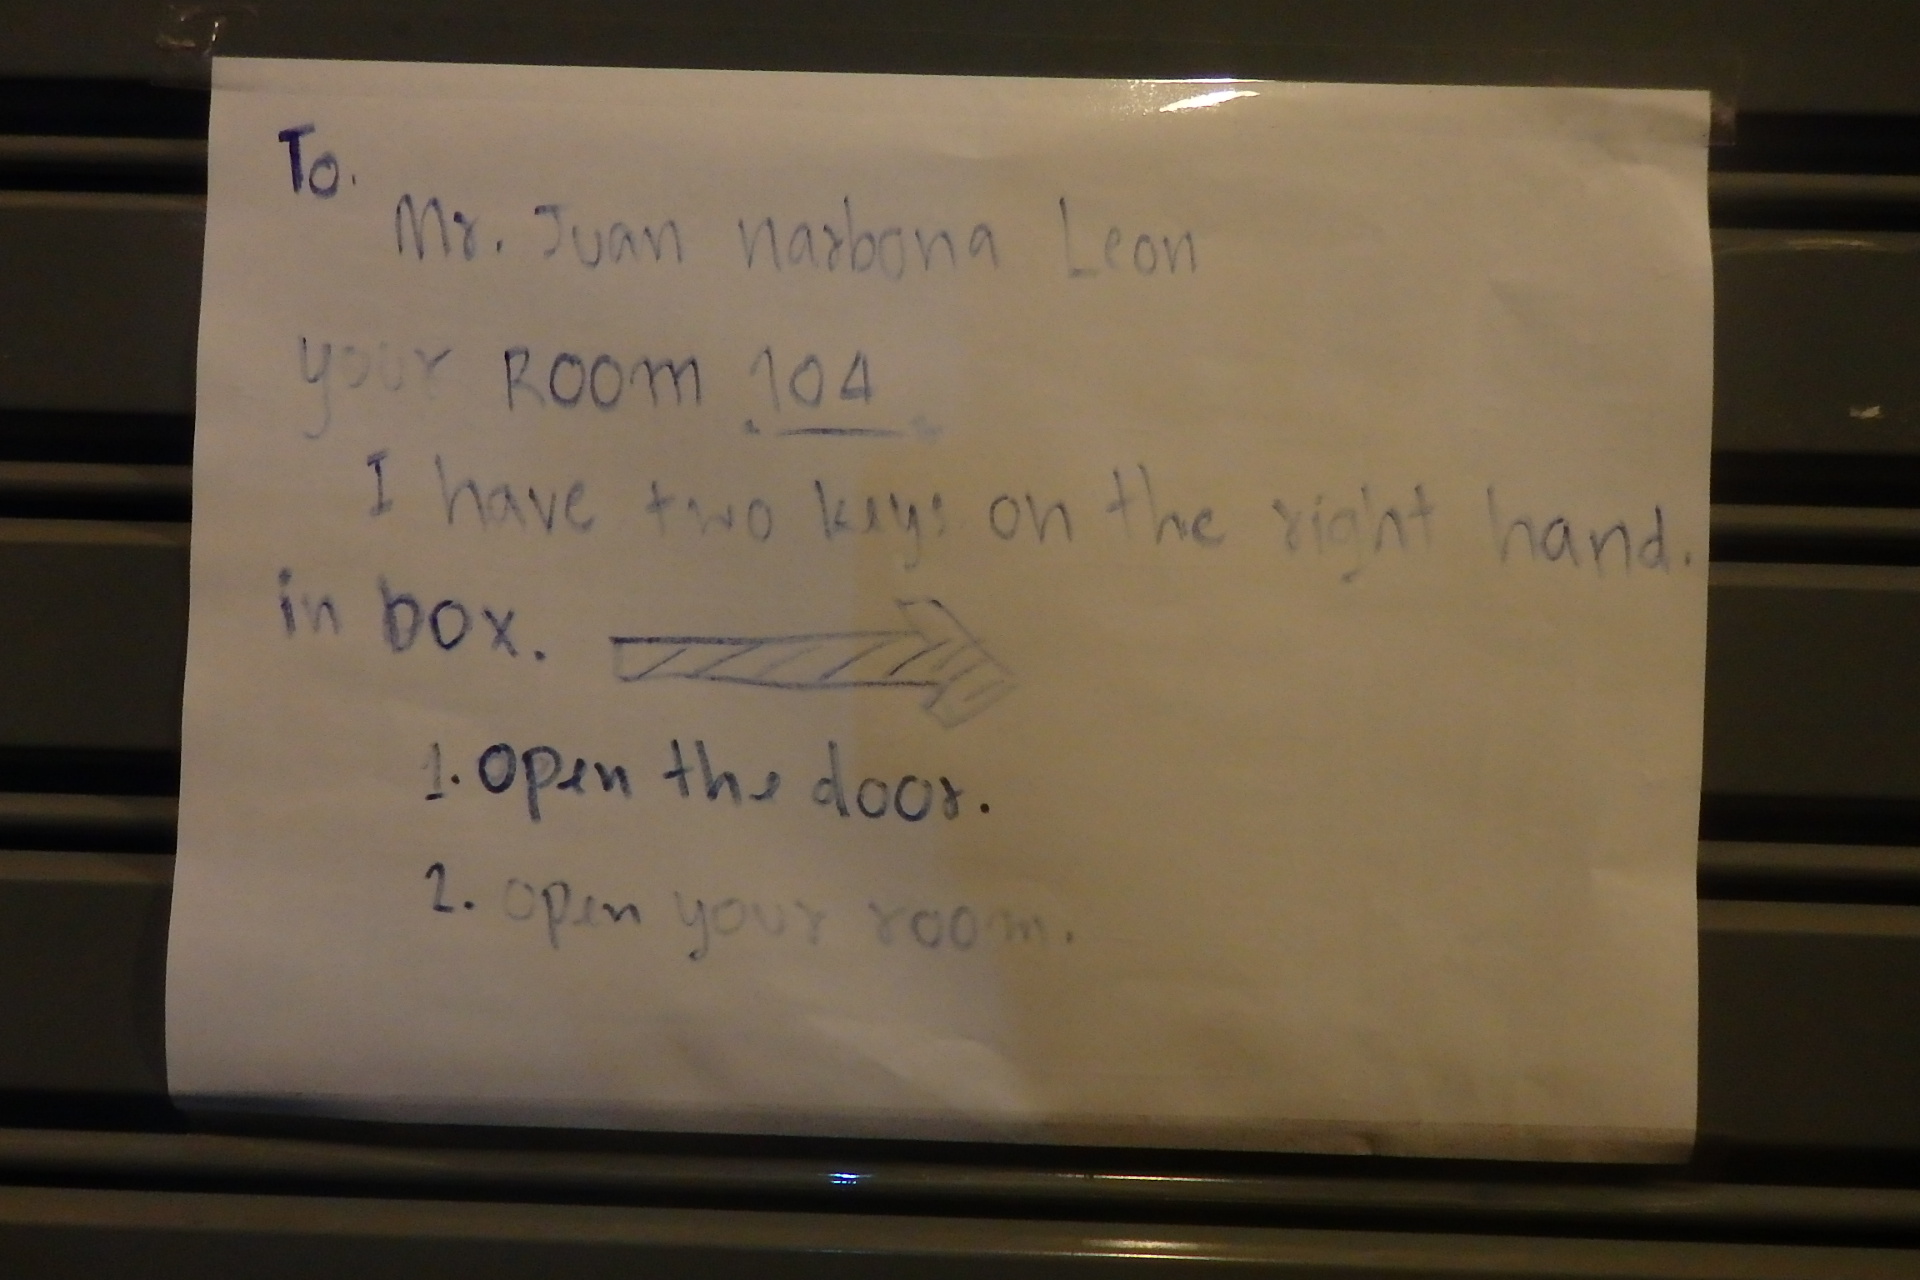 To.
Mr. Juan narbona Leon
your Room 104
I have two keys on the right hand.
in box.
1. Open the door.
2. open your room.